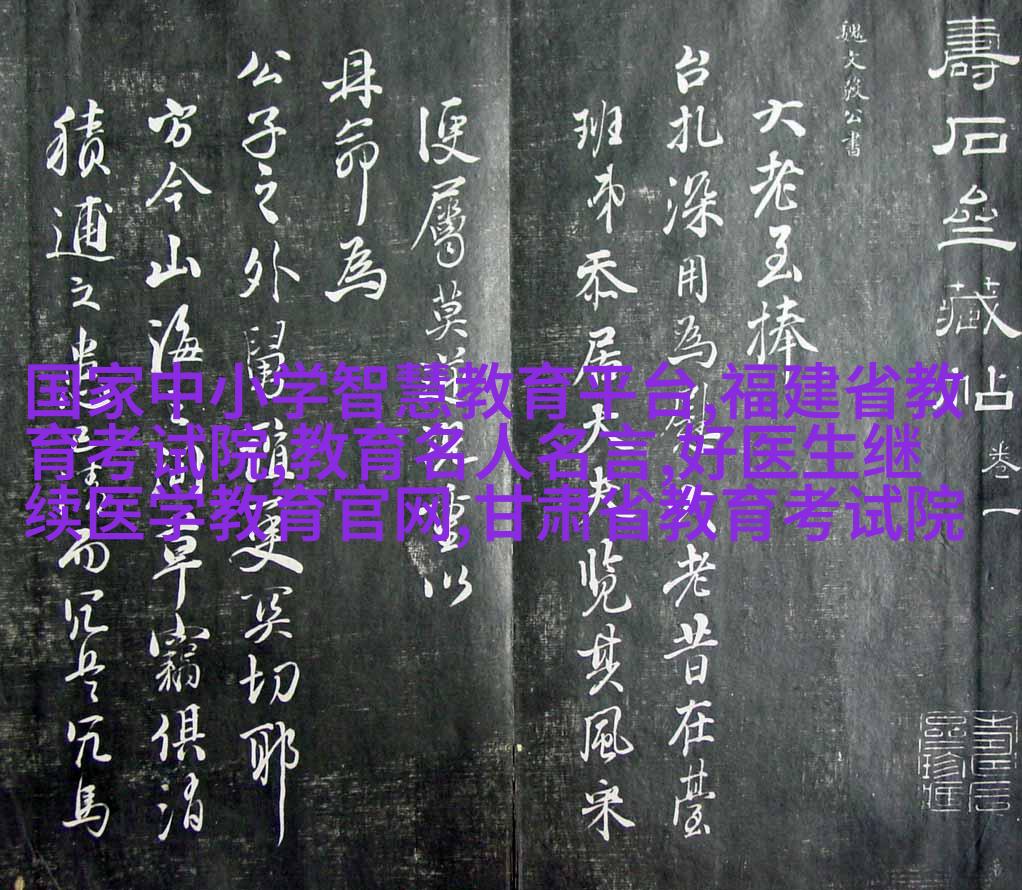 壽石亝藏帖 卷一
魏文毅公書
大老至捧
台扎深用為老昔在臺
班弟忝居大夫覽其風采
便屬莫重以
毋命為
公子之外舅更关切耶
方今山海草竊俱消
積逋之患而冗兵冗馬
国家中小学智慧教育平台,福建省教
育考试院,教育名人名言,好医生继
续医学教育官网,甘肃省教育考试院